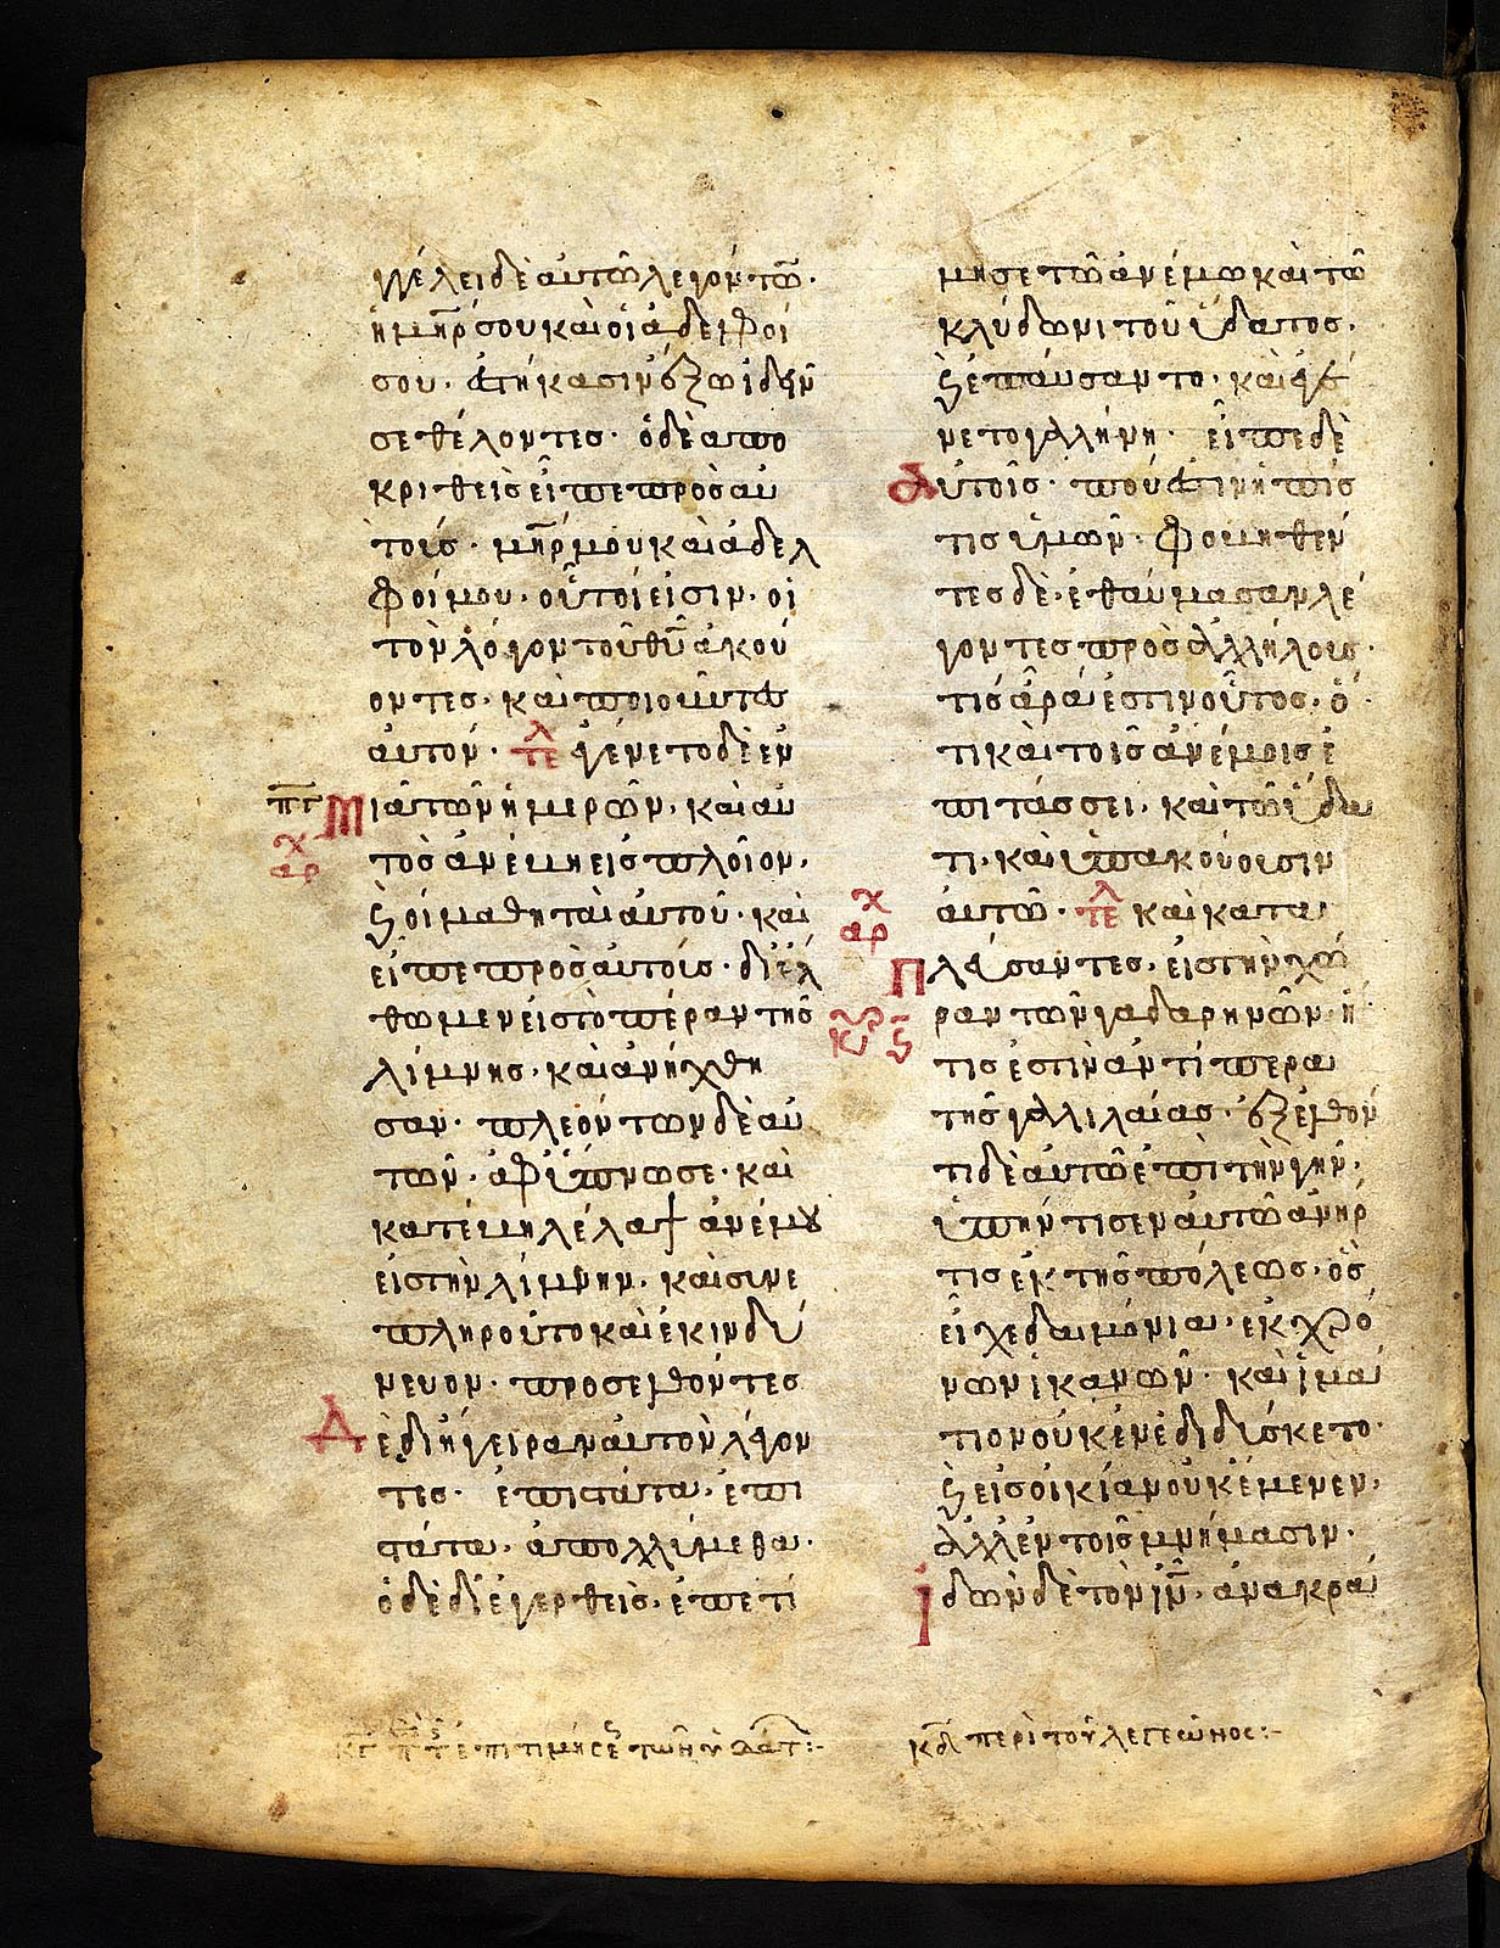 γγέλει δὲ αὐτῶ λεγόντω̅·
ἡ μη̅ρ σου καὶ οἱ ἀδελφοί
σου· ἑστήκασιν ἔξω ἰδεῖν
σε θέλοντες· ὁ δὲ ἀπο
κριθεὶς εἶπε πρὸς αὐ
τούς· μη̅ρ μου καὶ ἀδελ
φοί μου· οὗτοί εἰσιν· οἱ
τὸν λόγον τοῦ θυ̅ ἀκού
οντες· καὶ ποιοῦντες
αὐτόν· τελ ἐγένετο δὲ ἐν
πγ Μιᾶ τῶν ἡμερῶν· καὶ αὐ
αρχ τὸς ἀνέβη εἰς πλοῖον·
ϛ οἱ μαθηταὶ αὐτοῦ· καὶ
εἶπε πρὸς αὐτούς· διέλ
θωμεν εἰς τὸ πέραν τῆς
λίμνης· καὶ ἀνήχθη
σαν· πλεόντων δὲ αὐ
τῶν· ἀφύπνωσε· καὶ
κατέβη λέλαψ ἀνέμου
εἰς τὴν λίμνην· καὶ συνε
πληροῦντο καὶ ἐκινδύ
νευον· προσελθόντες
Δὲ διήγειραν αὐτὸν λέγον
τες· ἐπιστάτα· ἐπι
στάτα· ἀπολλύμεθα·
ὁ δὲ διεγερθεὶς· ἐπετί
μησε τῶ ἀνέμω καὶ τῶ
κλύδωνι τοῦ ὕδατος·
ϛ ἐπαύσαντο· καὶ ἐγέ
νετο γαλήνη· εἶπε δὲ
Αὐτοῖς· ποῦ ἐστιν ἡ πίσ
τις ὑμῶν· φοβηθέν
τες δὲ· ἐθαύμασαν λέ
γοντες πρὸς ἀλλήλους·
τίς ἄρα ἐστιν οὗτος· ὅ
τι καὶ τοῖς ἀνέμοις ἐ
πιτάσσει· καὶ τῶ ὕδα
τι· καὶ ὑπακούουσιν
αὐτῶ· τελ καὶ κατα
αρχ
Πλεύσαντες· εἰς τὴν χώ
κυ ϛ ραν τῶν γαδαρηνῶν· ἥ
τις ἐστὶν ἀντίπερα
τῆς γαλιλαίας· ἐξελθόν
τι δὲ αὐτῶ ἐπὶ τὴν γῆν·
ὑπήντισεν αὐτῶ ἀνήρ
τις ἐκ τῆς πόλεως· ὃς
εἶχε δαιμόνια· ἐκ χρό
νων ἱκανῶν· καὶ ἱμά
τιον οὐκ ἐνεδιδύσκετο·
ϛ εἰς οἰκίαν οὐκ ἔμενεν·
ἀλλ' ἐν τοῖς μνήμασιν·
Ἰδὼν δὲ τὸν ιν̅· ἀνακρά
κγ π τ ἐπιτιμήσε τῶν ὑδάτ:-
κδ περὶ τοῦ λεγεῶνος:-